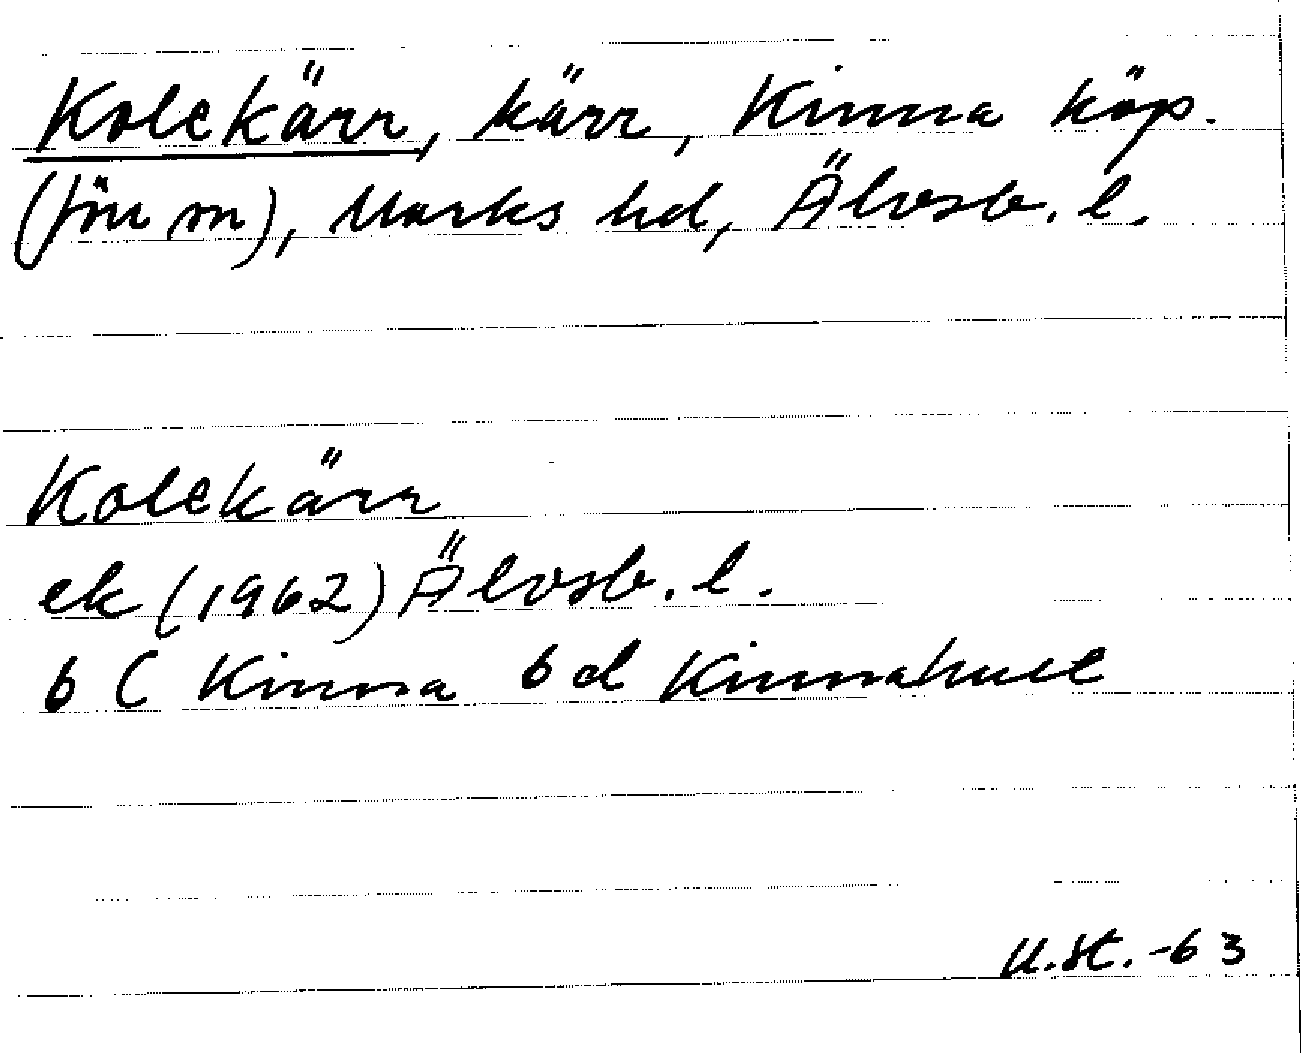 Kolekärr, kärr, Kinna köp.
(förr sn), Marks hd, Älvsb. l.
Kolekärr
ek (1962) Älvsb. l.
6 C Kinna 6d Kinnahult
U.St. -63